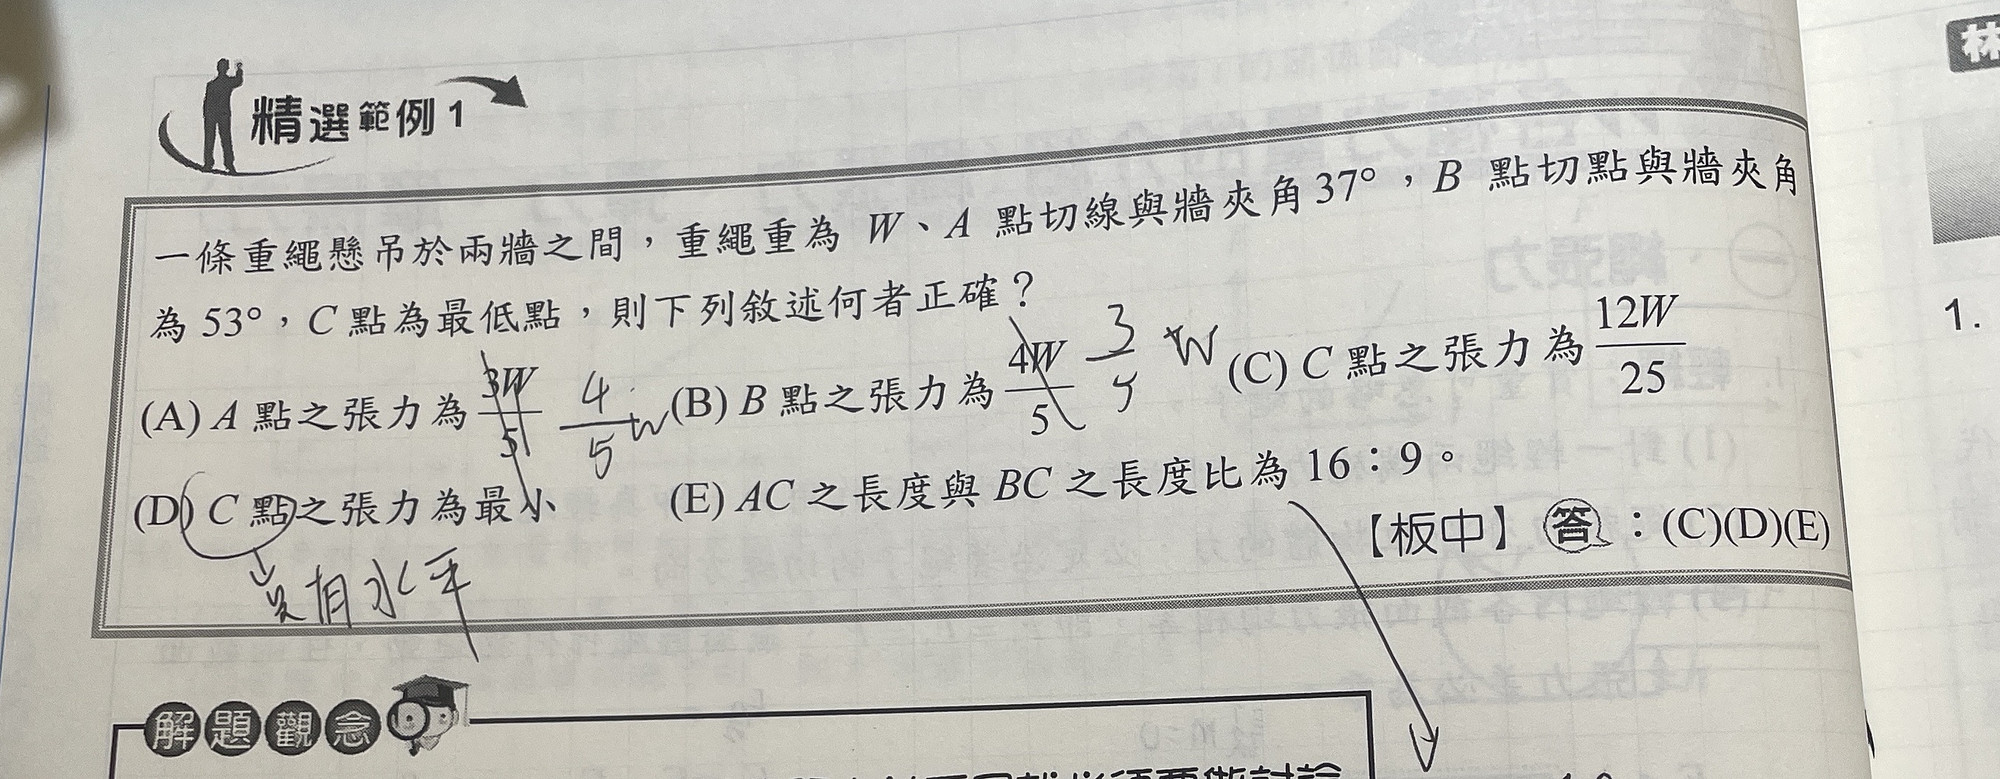 精選範例1
林
一條重繩懸吊於兩牆之間，重繩重為 W、A 點切線與牆夾角37°，B 點切點與牆夾角
為 53°，C 點為最低點，則下列敘述何者正確？
(A) A 點之張力為 3W/5 4/5 W (B) B 點之張力為 4W/5 3/5 W (C) C 點之張力為 12W/25
(D) C 點之張力為最小 (E) AC 之長度與 BC 之長度比為 16：9。
只有水平
【板中】答：(C)(D)(E)
解題觀念
1.